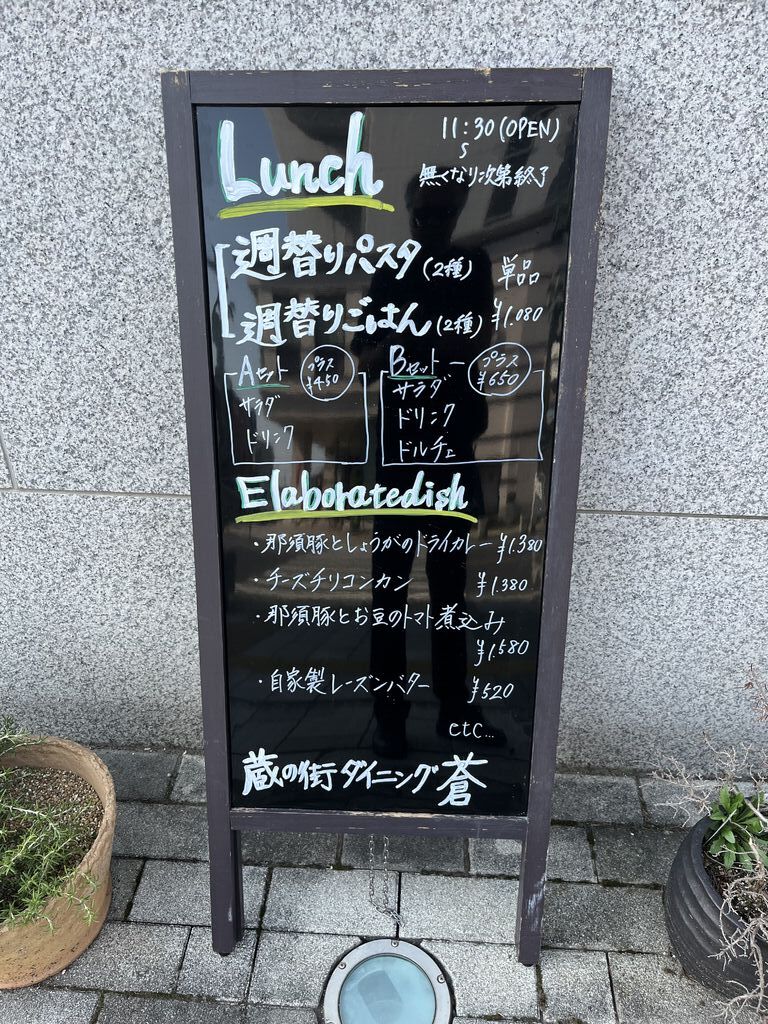 Lunch
11:30(OPEN)
〜
無くなり次第終了
週替りパスタ(2種) 単品
週替りごはん(2種) ¥1.080
Aセット プラス ¥450
サラダ
ドリンク
Bセット プラス ¥650
サラダ
ドリンク
ドルチェ
Elaboratedish
・那須豚としょうがのドライカレー ¥1.380
・チーズチリコンカン ¥1.380
・那須豚とお豆のトマト煮込み
¥1.580
・自家製レーズンバター ¥520
etc...
蔵の街ダイニング蒼